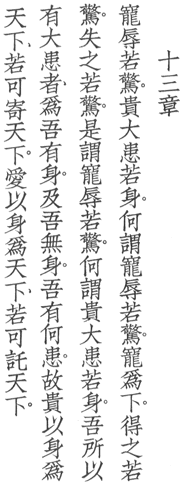 十三章
寵辱若驚。貴大患若身。何謂寵辱若驚。寵爲下。得之若
驚。失之若驚。是謂寵辱若驚。何謂貴大患若身。吾所以
有大患者、爲吾有身。及吾無身。吾有何患。故貴以身爲
天下、若可寄天下。愛以身爲天下、若可託天下。